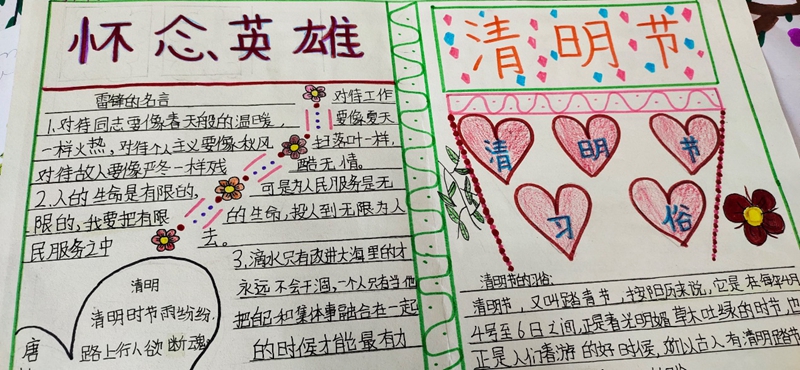 怀念英雄
雷锋的名言 对待工作
1.对待同志要像春天般的温暖, 要像夏天
一样火热,对待个人主义要像秋风 扫落叶一样,
对待故人要像严冬一样残 酷无情。
2.人的生命是有限的, 可是为人民服务是无
限的,我要把有限 的生命,投人到无限为人
民服务之中 去。
3.滴水只有改进大海里的才
永远不会干涸,一个人只有当他
把自己和集体事融合在一起
的时候才能最有力
清明
清明时节雨纷纷,
路上行人欲断魂
唐
清明节
清明节
习俗
清明节的习俗:
清明节,又叫踏青节,按阳历来说,它是在每年4月
4号至6日之间,正是春光明媚草木吐绿的时节,也
正是人们春游的好时候,所以古人有清明踏青